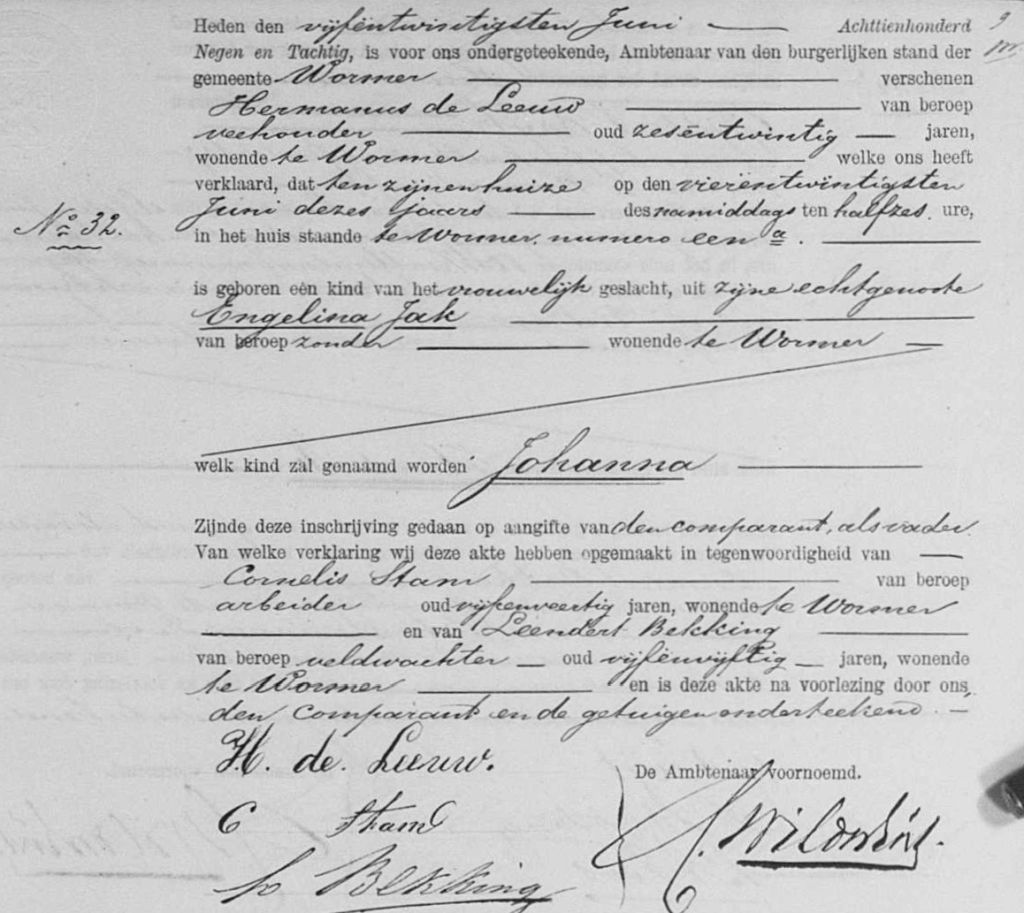 Heden den vijfentwintigsten Juni Achttienhonderd
Negen en Tachtig, is voor ons ondergeteekende, Ambtenaar van den burgerlijken stand der
gemeente Wormer verschenen
Hermanus de Leeuw van beroep
veehouder oud zesentwintig jaren,
wonende te Wormer welke ons heeft
verklaard, dat ten zijnen huize op den vierentwintigsten
Juni dezes jaars des namiddags ten halfzes ure,
No 32.
in het huis staande te Wormer, numero een a.
is geboren een kind van het vrouwelijk geslacht, uit zijne echtgenoote
Engelina Jak
van beroep zonder wonende te Wormer
welk kind zal genaamd worden Johanna
Zijnde deze inschrijving gedaan op aangifte van den comparant, als vader
Van welke verklaring wij deze akte hebben opgemaakt in tegenwoordigheid van
Cornelis Stam van beroep
arbeider oud vijfenveertig jaren, wonende te Wormer
en van Leendert Bekking
van beroep veldwachter oud vijfenvijftig jaren, wonende
te Wormer en is deze akte na voorlezing door ons,
den comparant en de getuigen onderteekend
H. de Leeuw.
De Ambtenaar voornoemd.
C Stam
Bekking